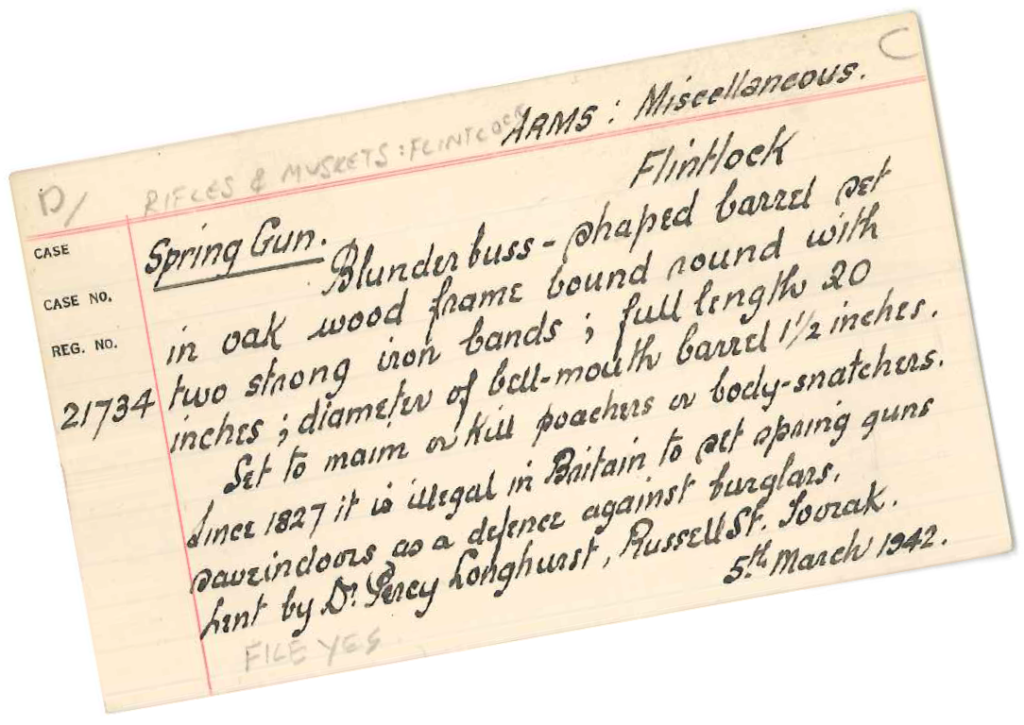 C
ARMS : Miscellaneous.
D/ RIFLES & MUSKETS : FLINTLOCK
Flintlock
CASE
Spring Gun.
Blunderbuss-shaped barrel set
CASE NO.
in oak wood frame bound round with
REG. NO.
two strong iron bands ; full length 20
21734
inches ; diameter of bell-mouth barrel 1 1/2 inches.
Set to maim or kill poachers or body-snatchers.
Since 1827 it is illegal in Britain to set spring guns
save indoors as a defence against burglars.
Lent by Dr. Percy Longhurst, Russell St. Toorak.
5th March 1942.
FILE YES